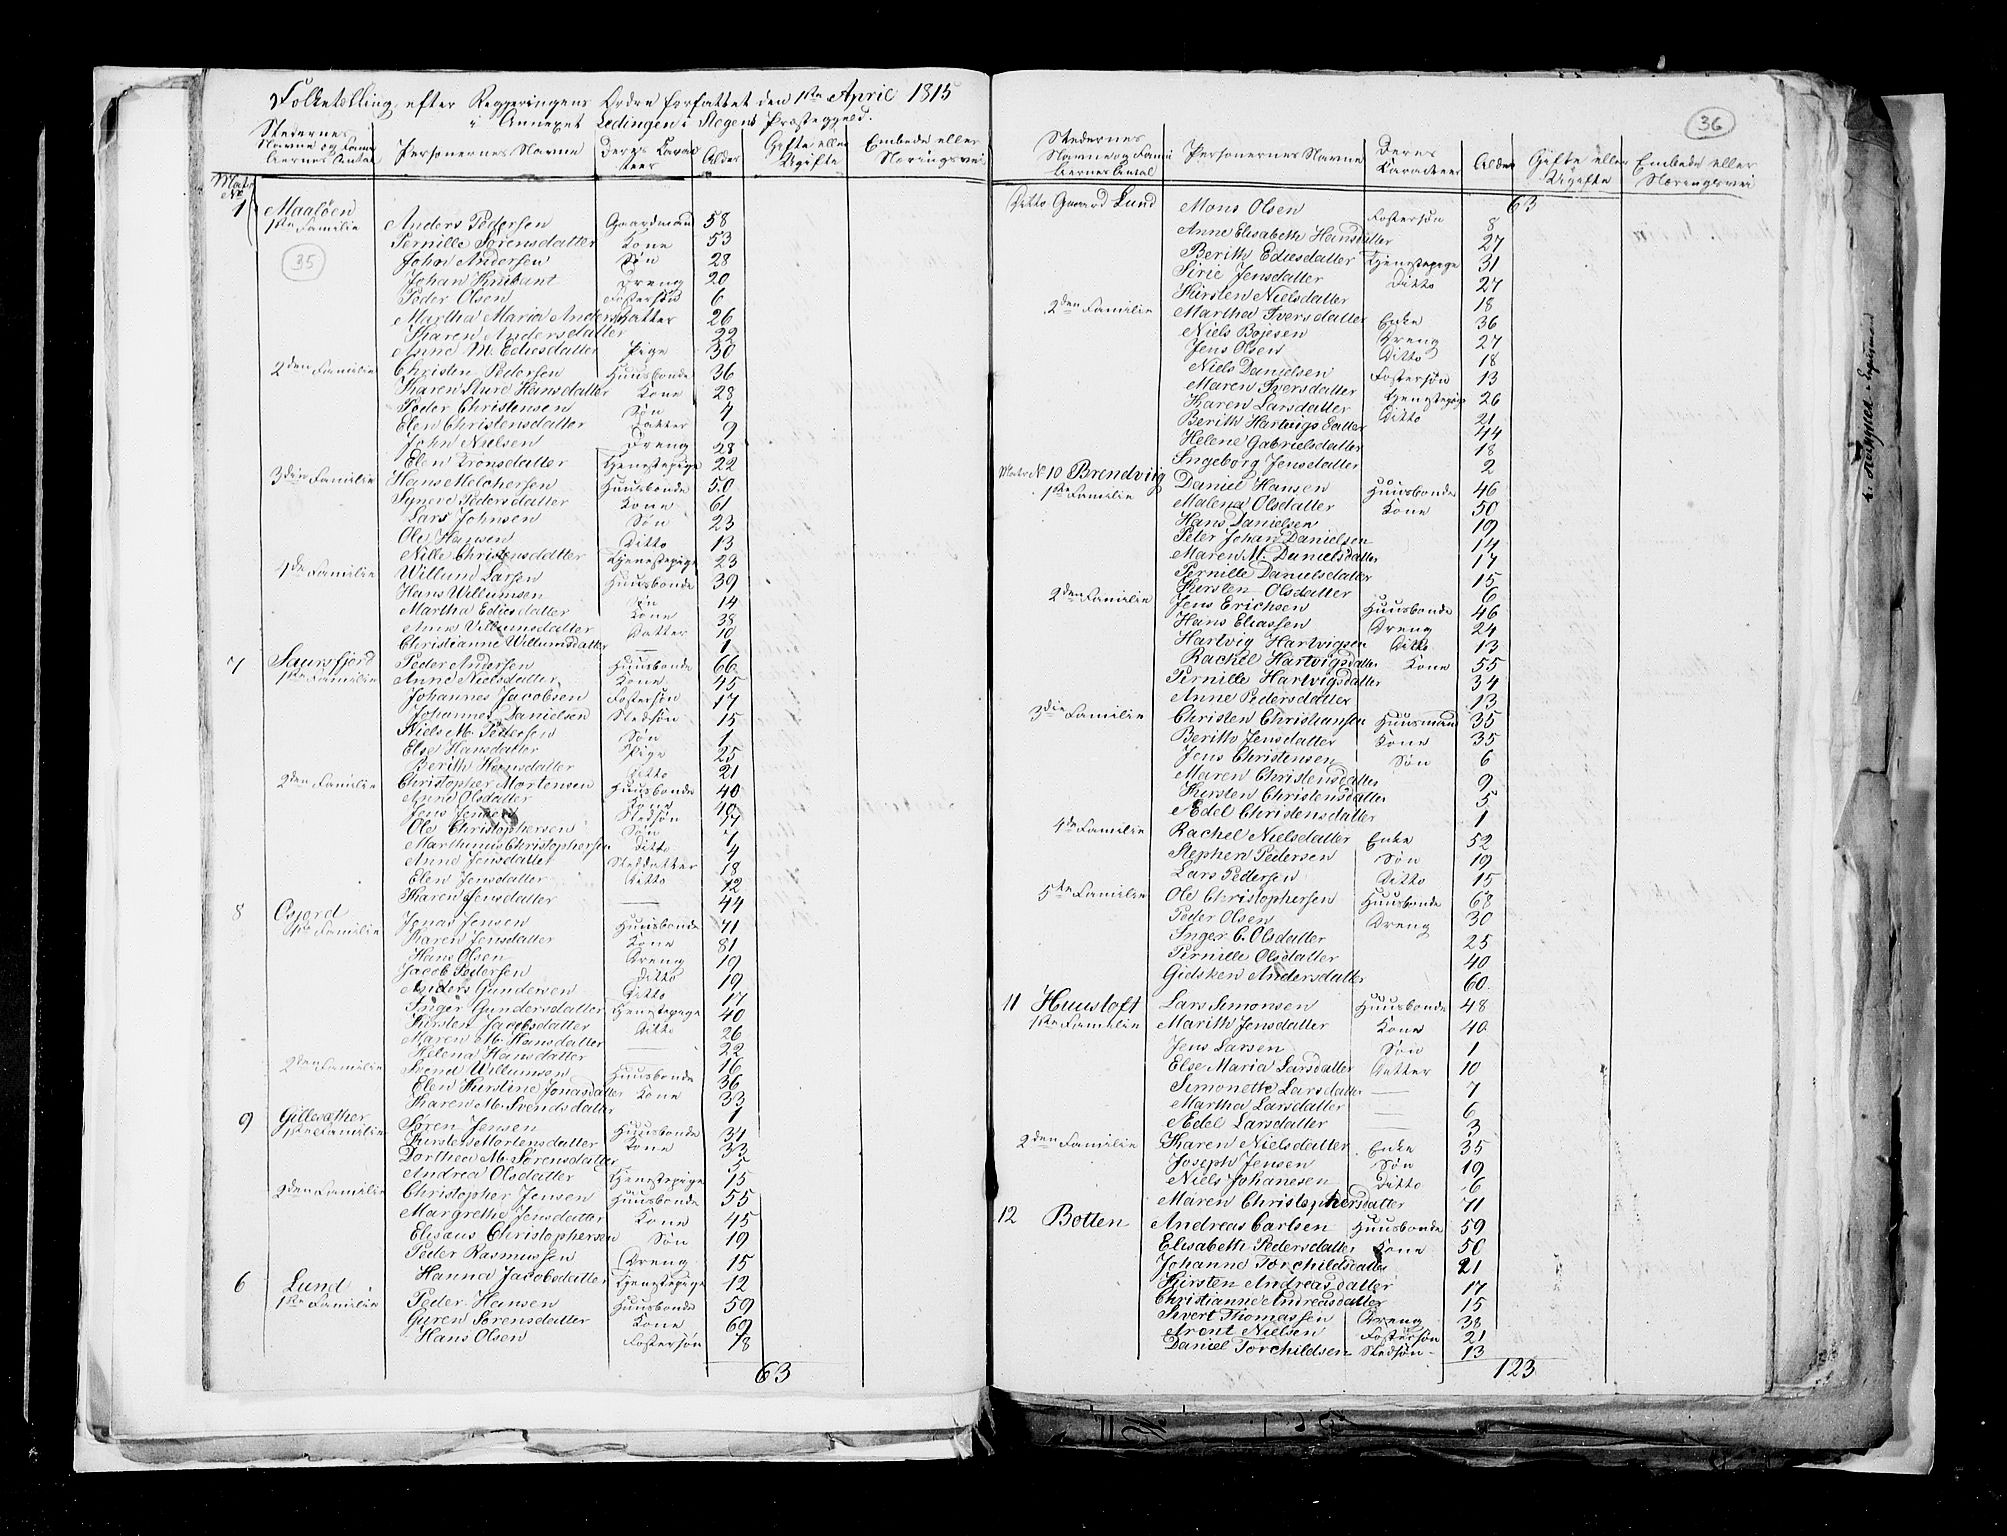 Folketælling, efter Regjeringens Ordre forfattet den 1ste April 1815
i Annexet Ledingen i Stegens Præstegjeld.
Stedernes Navne og Familiernes Antal | Personernes Navne | Deres Karakteer | Alder | Gifte eller Ugifte | Embede eller Næringsvei
Matr. No
1 Maaløen
1ste Familie Anders Pedersen Gaardmand 58
Pernille Sørensdatter Kone 53
John Andersen Søn 28
35
Johan Knibant Dreng 20
Peder Olsen Fostersøn 6
Martha Maria Andersdatter 26
Karen Andersdatter 22
Anne M. Ediesdatter Pige 30
2den Familie Christen Pedersen Huusbonde 36
Karen Sture Hansdatter Kone 28
Peder Christensen Søn 4
Elen Christensdatter Datter 9
John Nielsen Dreng 28
Elen Cronsdatter Tjenestepige 22
3die Familie Hans Melchersen Huusbonde 50
Syneve Pedersdatter Kone 61
Lars Johnsen Søn 23
Ole Hansen Ditto 13
Nille Christensdatter Tjenestepige 23
4de Familie Willum Larsen Huusbonde 39
Hans Willumsen Søn 14
Martha Ediesdatter Kone 38
Anne Villumsdatter Datter 10
Christianne Willumsdatter — 1
7 Saursfjord Peder Andersen Huusbonde 66
1ste Familie Anne Nielsdatter Kone 45
Johannes Jacobsen Fostersøn 17
Johannes Danielsen Stedsøn 15
Niels M. Pedersen Søn 1
Else Hansdatter Pige 25
Berith Hansdatter Ditto 21
2den Familie Christopher Mortensen Huusbonde 40
Anne Olsdatter Kone 40
Jens Jensen Stedsøn 17
Ole Christophersen Søn 7
Marthinus Christophersen Ditto 4
Anne Jensdatter Steddatter 18
Elen Jensdatter Ditto 12
Karen Jensdatter — 44
8 Osjord
1ste Familie Jonas Jensen Huusbonde 41
Karen Jensdatter Kone 81
Hans Olsen Dreng 19
Jacob Pedersen Ditto 19
Anders Gundersen Ditto 17
Inger Gundersdatter Tjenestepige 40
Kirsten Jacobsdatter Ditto 26
Maren M. Hansdatter — 22
Helena Hansdatter — 16
2den Familie Svend Willumsen Huusbonde 36
Elen Kirstine Jonasdatter Kone 33
Karen M. Svendsdatter 1
9 Gillesæther Søren Jensen Huusbonde 31
1ste Familie Kirsten Mortensdatter Kone 33
Dorthea M. Sørensdatter 5
Andrea Olsdatter Tjenestepige 15
2den Familie Christopher Jensen Huusbonde 55
Margrethe Jensdatter Kone 45
Elisæus Christophersen Søn 19
Peder Rasmussen Dreng 15
Hanna Jacobsdatter Tjenestepige 12
6 Lund
1ste Familie Peder Hansen Huusbonde 59
Guren Sørensdatter Kone 69
Hans Olsen Fostersøn 18
63
36
Stedernes Navne og Familiernes Antal | Personernes Navne | Deres Karakteer | Alder | Gifte eller Ugifte | Embede eller Næringsvei
63
Ditto Gaard Lund Mons Olsen Fostersøn 8
Anne Elisabeth Hansdatter 27
Berith Ediesdatter Tjenestepige 31
Sirie Jensdatter Ditto 27
Kirsten Nielsdatter 18
2den Familie Martha Iversdatter Enke 36
Niels Bojesen Dreng 27
Jens Olsen Ditto 18
Niels Danielsen Fostersøn 13
Maren Iversdatter Tjenestepige 26
Karen Larsdatter Ditto 21
Berith Hartvigsdatter 44
Helene Gabrielsdatter 18
Ingeborg Jensdatter 2
Matr. No 10 Brendviig Daniel Hansen Huusbonde 46
1ste Familie Malena Olsdatter Kone 50
Hans Danielsen 19
Peter Johan Danielsen 14
Maren M. Danielsdatter 17
Pernille Danielsdatter 15
Kirsten Olsdatter 6
2den Familie Jens Erichsen Huusbonde 46
Hans Eliassen Dreng 24
Hartvig Hartvigsen Ditto 13
Rachel Hartvigsdatter Kone 55
Pernille Hartvigsdatter 34
Anne Pedersdatter 13
3die Familie Christen Christiansen Huusmand 35
Beritto Jensdatter Kone 35
Jens Christensen Søn 6
Maren Christensdatter 9
Kirsten Christensdatter 5
Edel Christensdatter 1
4de Familie Rachel Nielsdatter Enke 52
Stephen Pedersen Søn 19
Lars Pedersen Ditto 15
5te Familie Ole Christophersen Huusbonde 68
Peder Olsen Dreng 30
Inger C. Olsdatter 25
Pernille Olsdatter 40
Gidsken Andersdatter 60
11 Huustoft Lars Simonsen Huusbonde 48
1ste Familie Marith Jensdatter Kone 40
Jens Larsen Søn 1
Else Maria Larsdatter Datter 10
Simonette Larsdatter — 7
Martha Larsdatter — 6
Edel Larsdatter — 3
2den Familie Karen Nielsdatter Enke 35
Joseph Jensen Søn 19
Niels Johanesen Ditto 6
Maren Christophersdatter 71
12 Botten Andreas Carlsen Huusbonde 59
Elisabeth Pedersdatter Kone 50
Johanne Torchildsdatter 21
Kirsten Andreasdatter 17
Christianne Andreasdatter 15
Sivert Thomassen Dreng 38
Arent Nielsen Fostersøn 21
Daniel Torchildsen Stedsøn 13
123